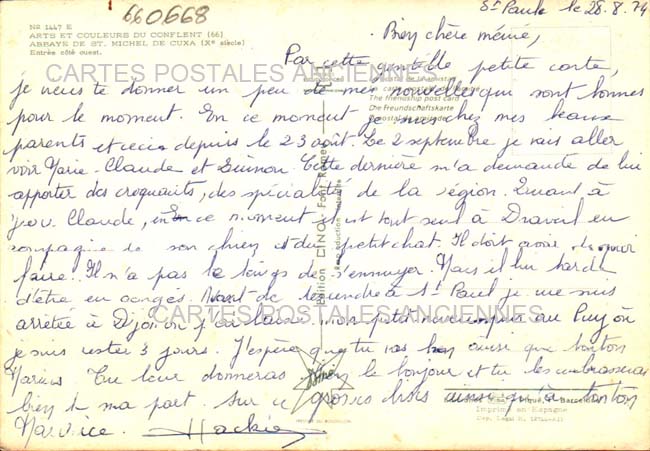 660668
St Paul le 28.8.74
No 1447 E
ARTS ET COULEURS DU CONFLENT (66)
ABBAYE DE ST. MICHEL DE CUXA (Xe siècle)
Entrée côté ouest.
Bien chère mémé,
CARTES POSTALES ANCIENNES
Par cette gentille petite carte,
je veux te donner un peu de mes nouvelles qui sont bonnes
The friendship post card
Die Freundschaftskarte
pour le moment. En ce moment je suis chez mes beaux
parents et ceci depuis le 23 août. Le 2 septembre je vais aller
voir Marie-Claude et Cette dernière m'a demandé de lui
apporter des croquants, des spécialités de la région. Quant à
Claude, en ce moment il est tout seul à Draveil en
compagnie de son chien et du petit chat. Il doit avoir de quoi
faire. Il n'a pas le temps de s'ennuyer. Mais il lui tarde
d'être en congés. Avant de descendre à St Paul je me suis
CARTES POSTALES ANCIENNES
arrêtée à Dijon mon petit au Puy où
je suis restée 3 jours. J'espère que tu vas bien ainsi que tonton
Marius. Tu leur donneras bien le bonjour et tu les embrasseras
bien de ma part. Sur ce grosses bises ainsi qu'à tonton
Imprimé en Espagne
Maurice. Jackie